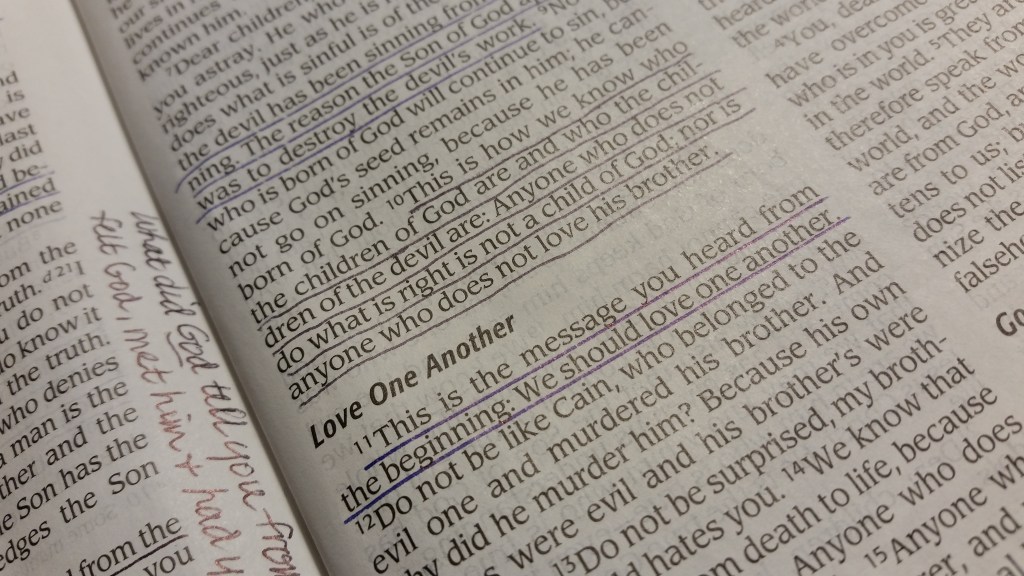 nd
is
ave
last
did
d be-
ained
none
om the
ruth.
u do not
lo know it
the truth.
who denies
man is the
ther and the
e Son has the
edges the Son
from the
you
What did God tell you from
felt God, met him + had
continues
known him.
"Dear children
you astray. He who
righteous, just as he is
does what is sinful is of the
the devil has been sinning from
ning. The reason the Son of God
was to destroy the devil's work.
who is born of God will continue to sin, be
cause God's seed remains in him; he can
not go on sinning, because he has been
born of God. 10This is how we know who
the children of God are and who the chil-
dren of the devil are: Anyone who does not
do what is right is not a child of God; nor is
anyone who does not love his brother.
Love One Another
11This is the message you heard from
the beginning: We should love one another.
12Do not be like Cain, who belonged to the
evil one and murdered his brother. And
why did he murder him? Because his own
were evil and his brother's were
13Do not be surprised, my broth-
hates you. 14We know that
om death to life, because
Anyone who does
15Anyone wh
er, and
the wor
4You, dea
have overcome
who is in you is grea
in the world. 5They ar
therefore speak from
world, and the wo
are from God, a
tens to us; b
does not lis
nize the
falseh
Go